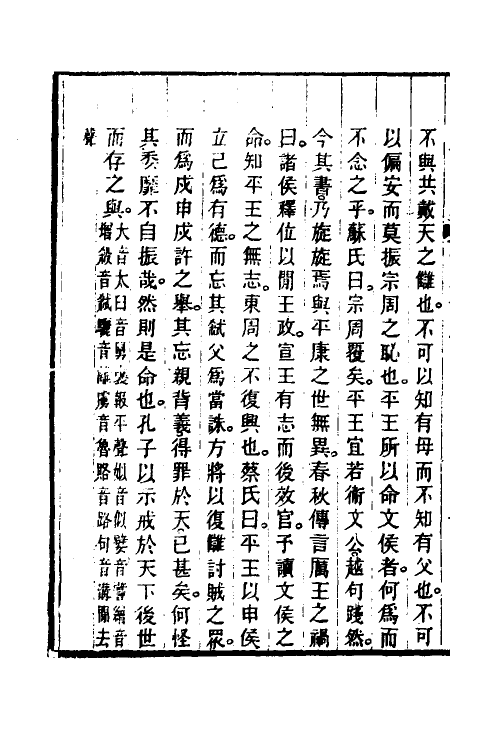 不與共戴天之讎也。不可以知有母而不知有父也。不可
以偏安而莫振宗周之恥也。平王所以命文侯者。何爲而
不念之乎。蘇氏曰。宗周覆矣。平王宜若衛文公。越句踐然。
今其書。乃旋旋焉與平康之世無異。春秋傳言厲王之禍
曰。諸侯釋位以閒王政。宣王有志而後效官。予讀文侯之
命。知平王之無志。東周之不復興也。蔡氏曰。平王以申侯
立己爲有德。而忘其弑父爲當誅。方將以復讎討賊之眾。
而爲戍申戍許之舉。其忘親背義得罪於天已甚矣。何怪
其委靡不自振哉。然則是命也。孔子以示戒於天下後世
而存之與。大音太臼音舅褎報平聲姒音似嬖音嘗繒音
增弑音試驪音離虜音魯路音路句音溝閒去
聲